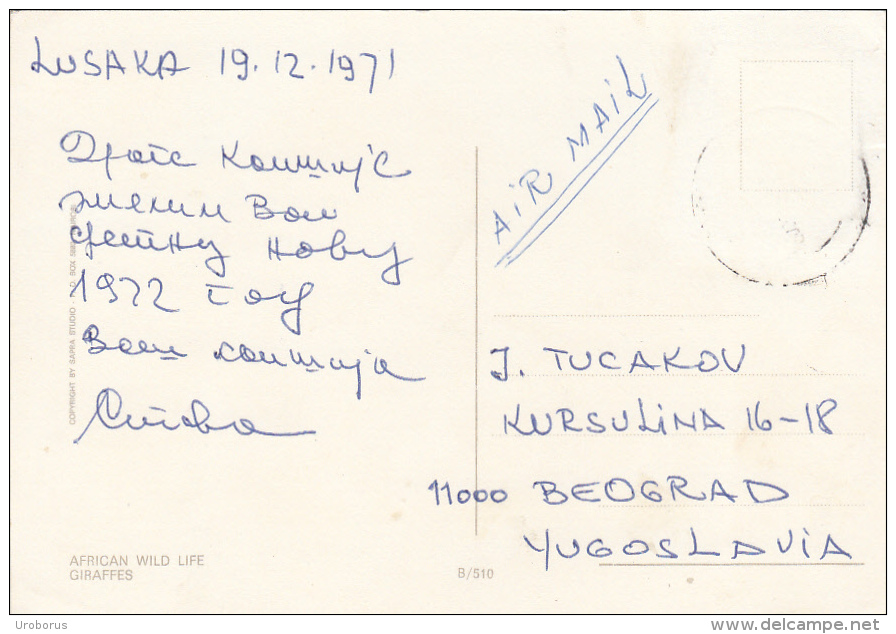 LUSAKA 19.12.1971
AIR MAIL
Драге Комшије
желим Вам
срећну Нову
1972 год
Ваш комшија
Стева
J. TUCAKOV
KURSULINA 16-18
11000 BEOGRAD
YUGOSLAVIA
AFRICAN WILD LIFE
GIRAFFES
B/510
COPYRIGHT BY SAPRA STUDIO - P.O. BOX
Uroborus
www.delcampe.net